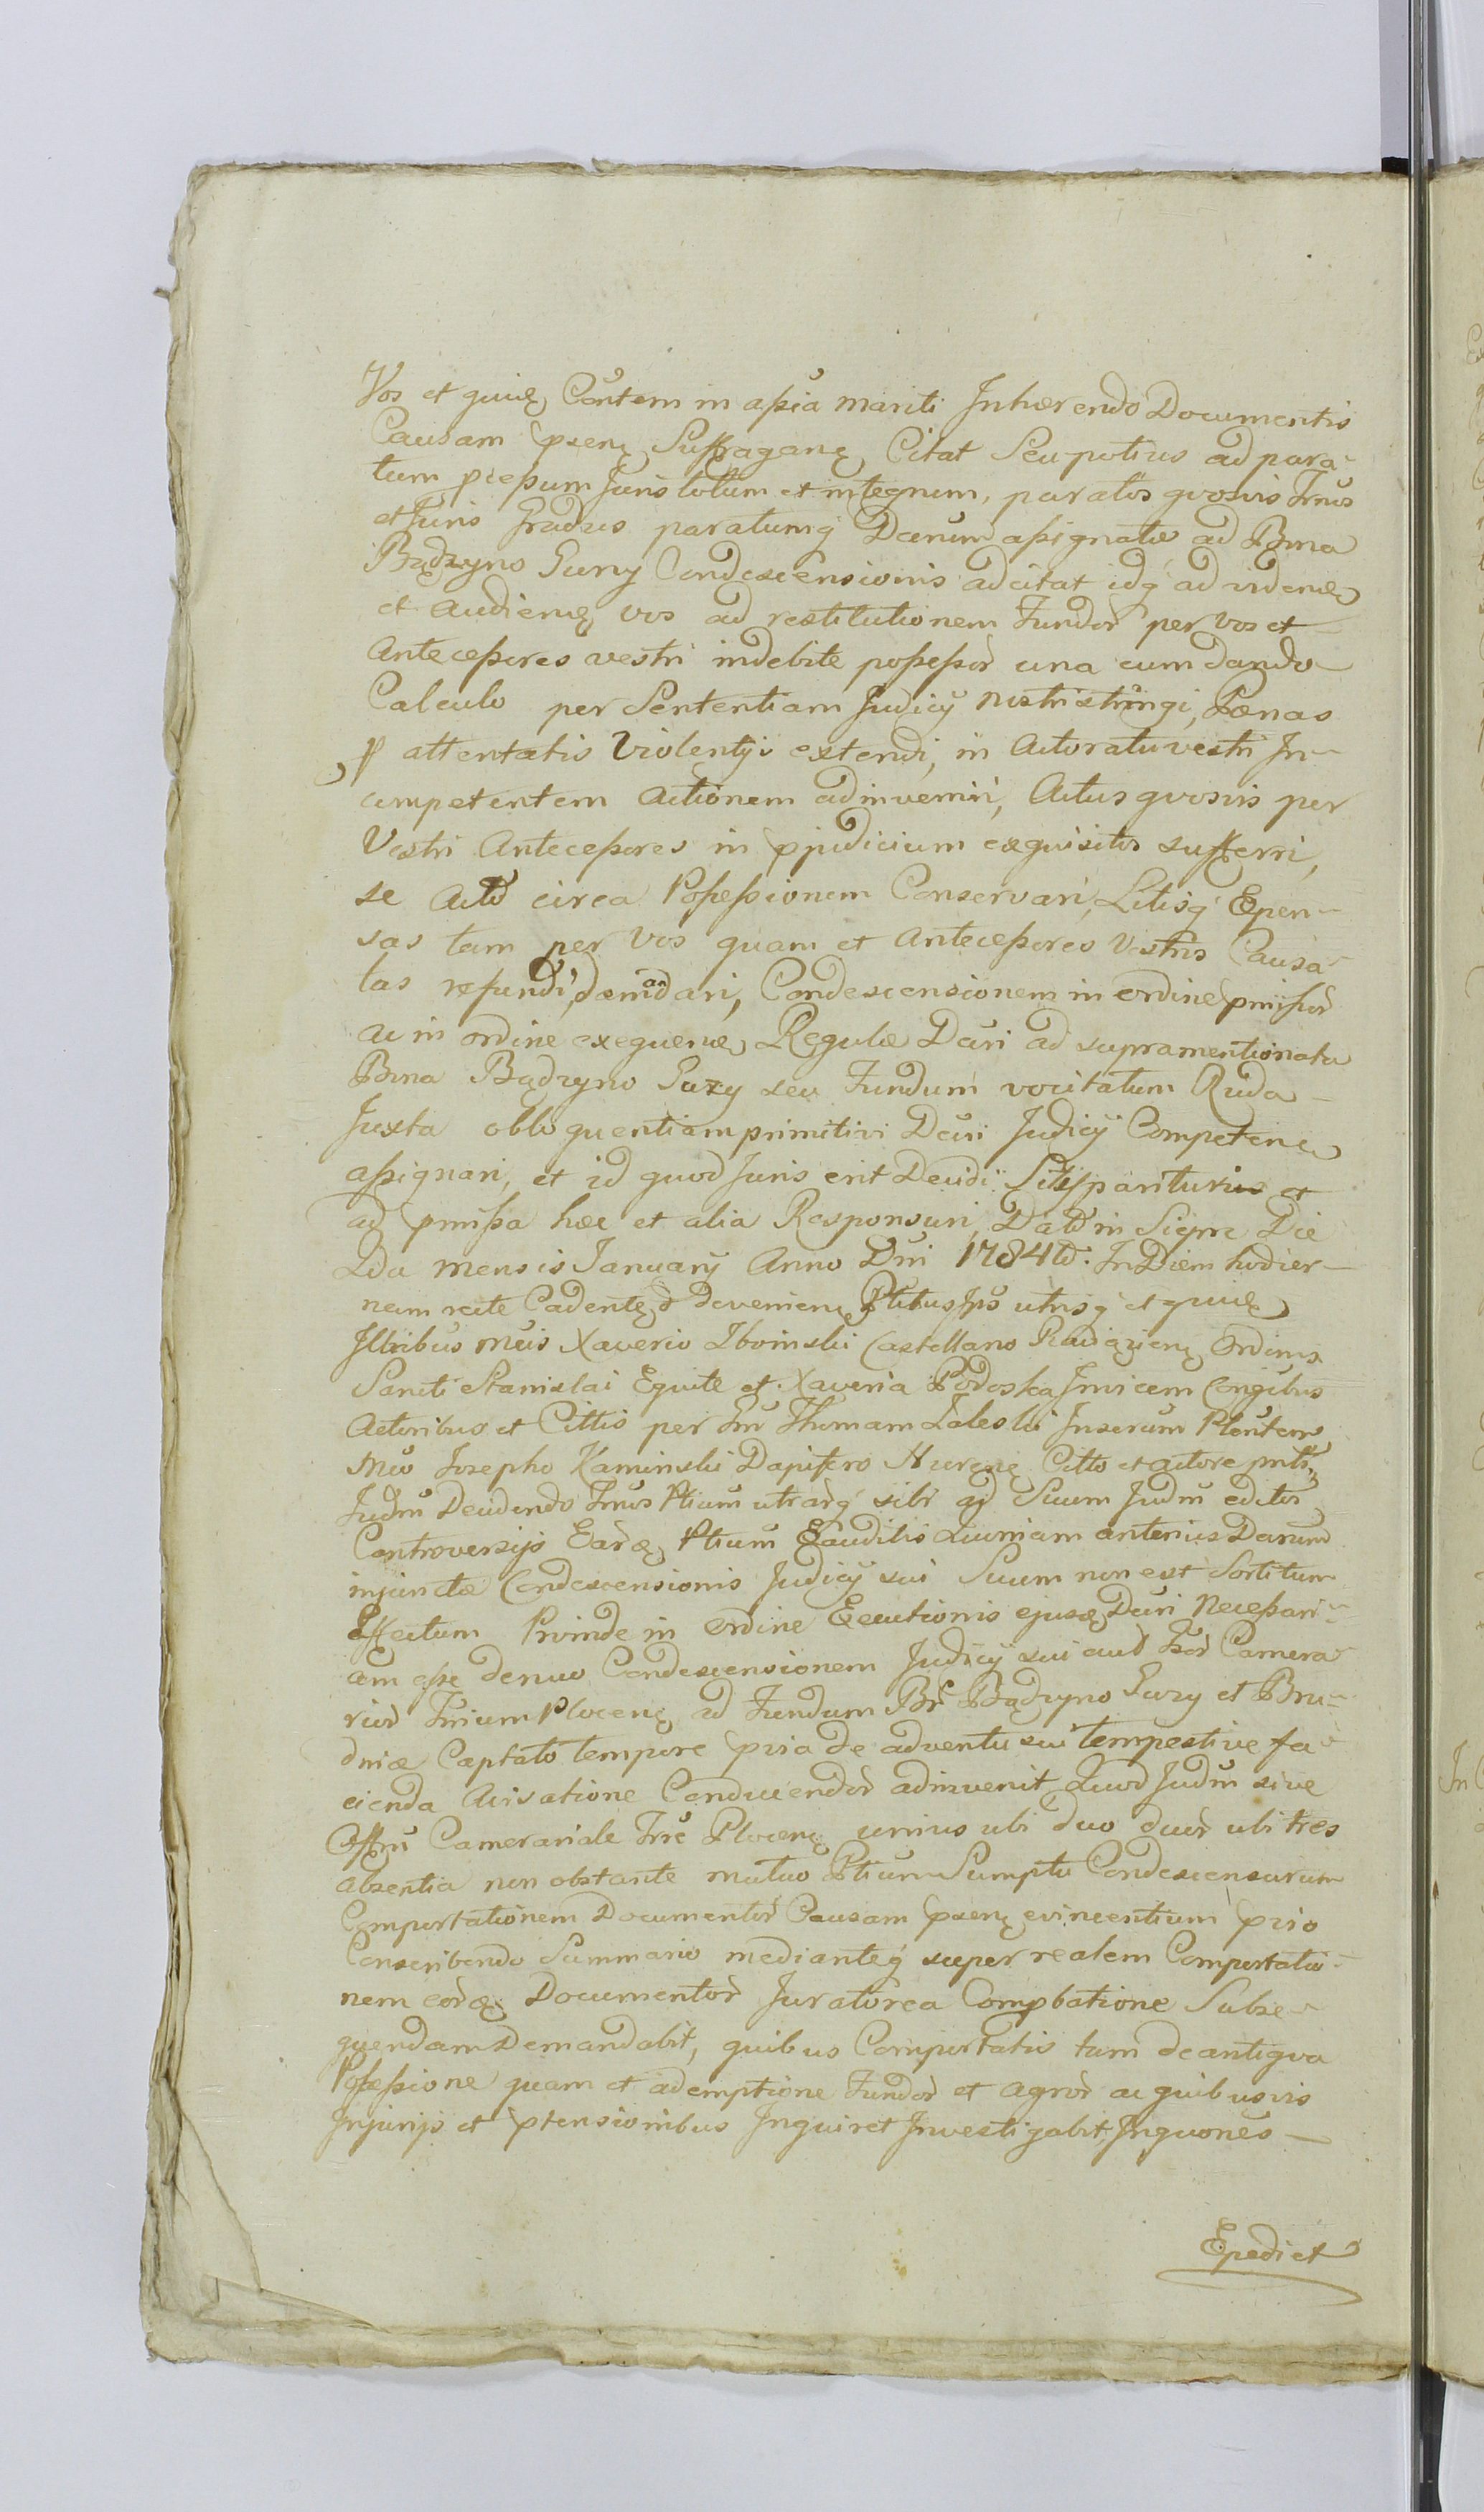 Vos et quivę Contem in aßia mariti Inhærendo Documentis
Causam pseną Suffraganę Citat Seu potius ad para-
tum pießum Juris totum et integrum, paratos quosvis Trnos
et Juris Gradus paratumq Darum aßignatæ ad Bona
Bądzyno Gury Condescensionis adcitat idq ad videnđ
et audienđ vos ad restitutionem Fundor per vos et
Anteceßores vestri indebite poßeßor una cum dando
Calculo per Sententiam Judicij nostri stringi, Pœnas
p attentatis Violentijs extendi, in Actoratu vestri In-
competentem Actionem adinveniri, Actus quosvis per
Vestri Anteceßores in pjudicium exquisitos sufferri,
se Actor circa Poßeßionem Conservari, Litisq Expen-
sas tam per vos quam et Anteceßores Vestros Causa-
tas refundi, demandari, Condescensionem in ordine pmißor
ac in ordine exequenđ Regulæ Dcri ad supramentionata
Bona Bądzyno Guzy seu Fundum vocitatum Ruda
Juxta obloquentiam primitivi Dcri Judicij Competenę
aßignari, et id quod Juris erit Decidi. Sitis parituri et
ad pmißa hæc et alia Responsuri, Datt in Sierpc Die
2da mensis January Anno Dni 1784to. In Diem hodier-
nam recte Cadentę et devenienę Ptibus Ips utrisq et quivę
Illribus Mcis Xaverio Zboinski Castellano Raciązienę Ordinis
Sancti Stanislai Equite et Xaveria Podoska Invicem Congibus
Actoribus et Cittis per Gnm Thomam Zaleski Inserum Plentem
Mco Josepho Kaminski Dapifero Nurenę Citto et actore pnti,
Judm Decidendo Trnos Ptium utrarq sibi ad Suum Judm editos
Controversijs Earđ Ptium Exauditis Quoniam anterius Darum
injunctæ Condescensionis Judicij sui Suum non est Sortitum
Effectum Proinde in Ordine Executionis ejusđ Dcri Neceßari-
am eße denuo Condescensionem Judicij sui aut Gsor Camera-
rior Trium Plocenę ad Fundum Br Bądzyno Guzy et Bru-
dniæ Captato tempore pvia de adventu sui tempestive fa-
cienda Avisatione Conducendor adinvenit Quod Judm sive
Offm Camerariale Trre Plocenę unius ubi duo duor ubi tres
absentia non obstante mutuo Ptium Sumptu Condescensurum
Comportationem Documentor Causam psenę evincentium pvio
Conscribendo Summario medianteq super realem Comportatio-
nem eorđ Documentor Juratorea Compbatione Subse-
quendam Demandabit, quibus Comportatis tam de antiqva
Poßeßione quam et ademptione Fundor et agror ac quibusvis
Injurijs et ptensionibus Inquiret Investigabit, Inquones
Expediet